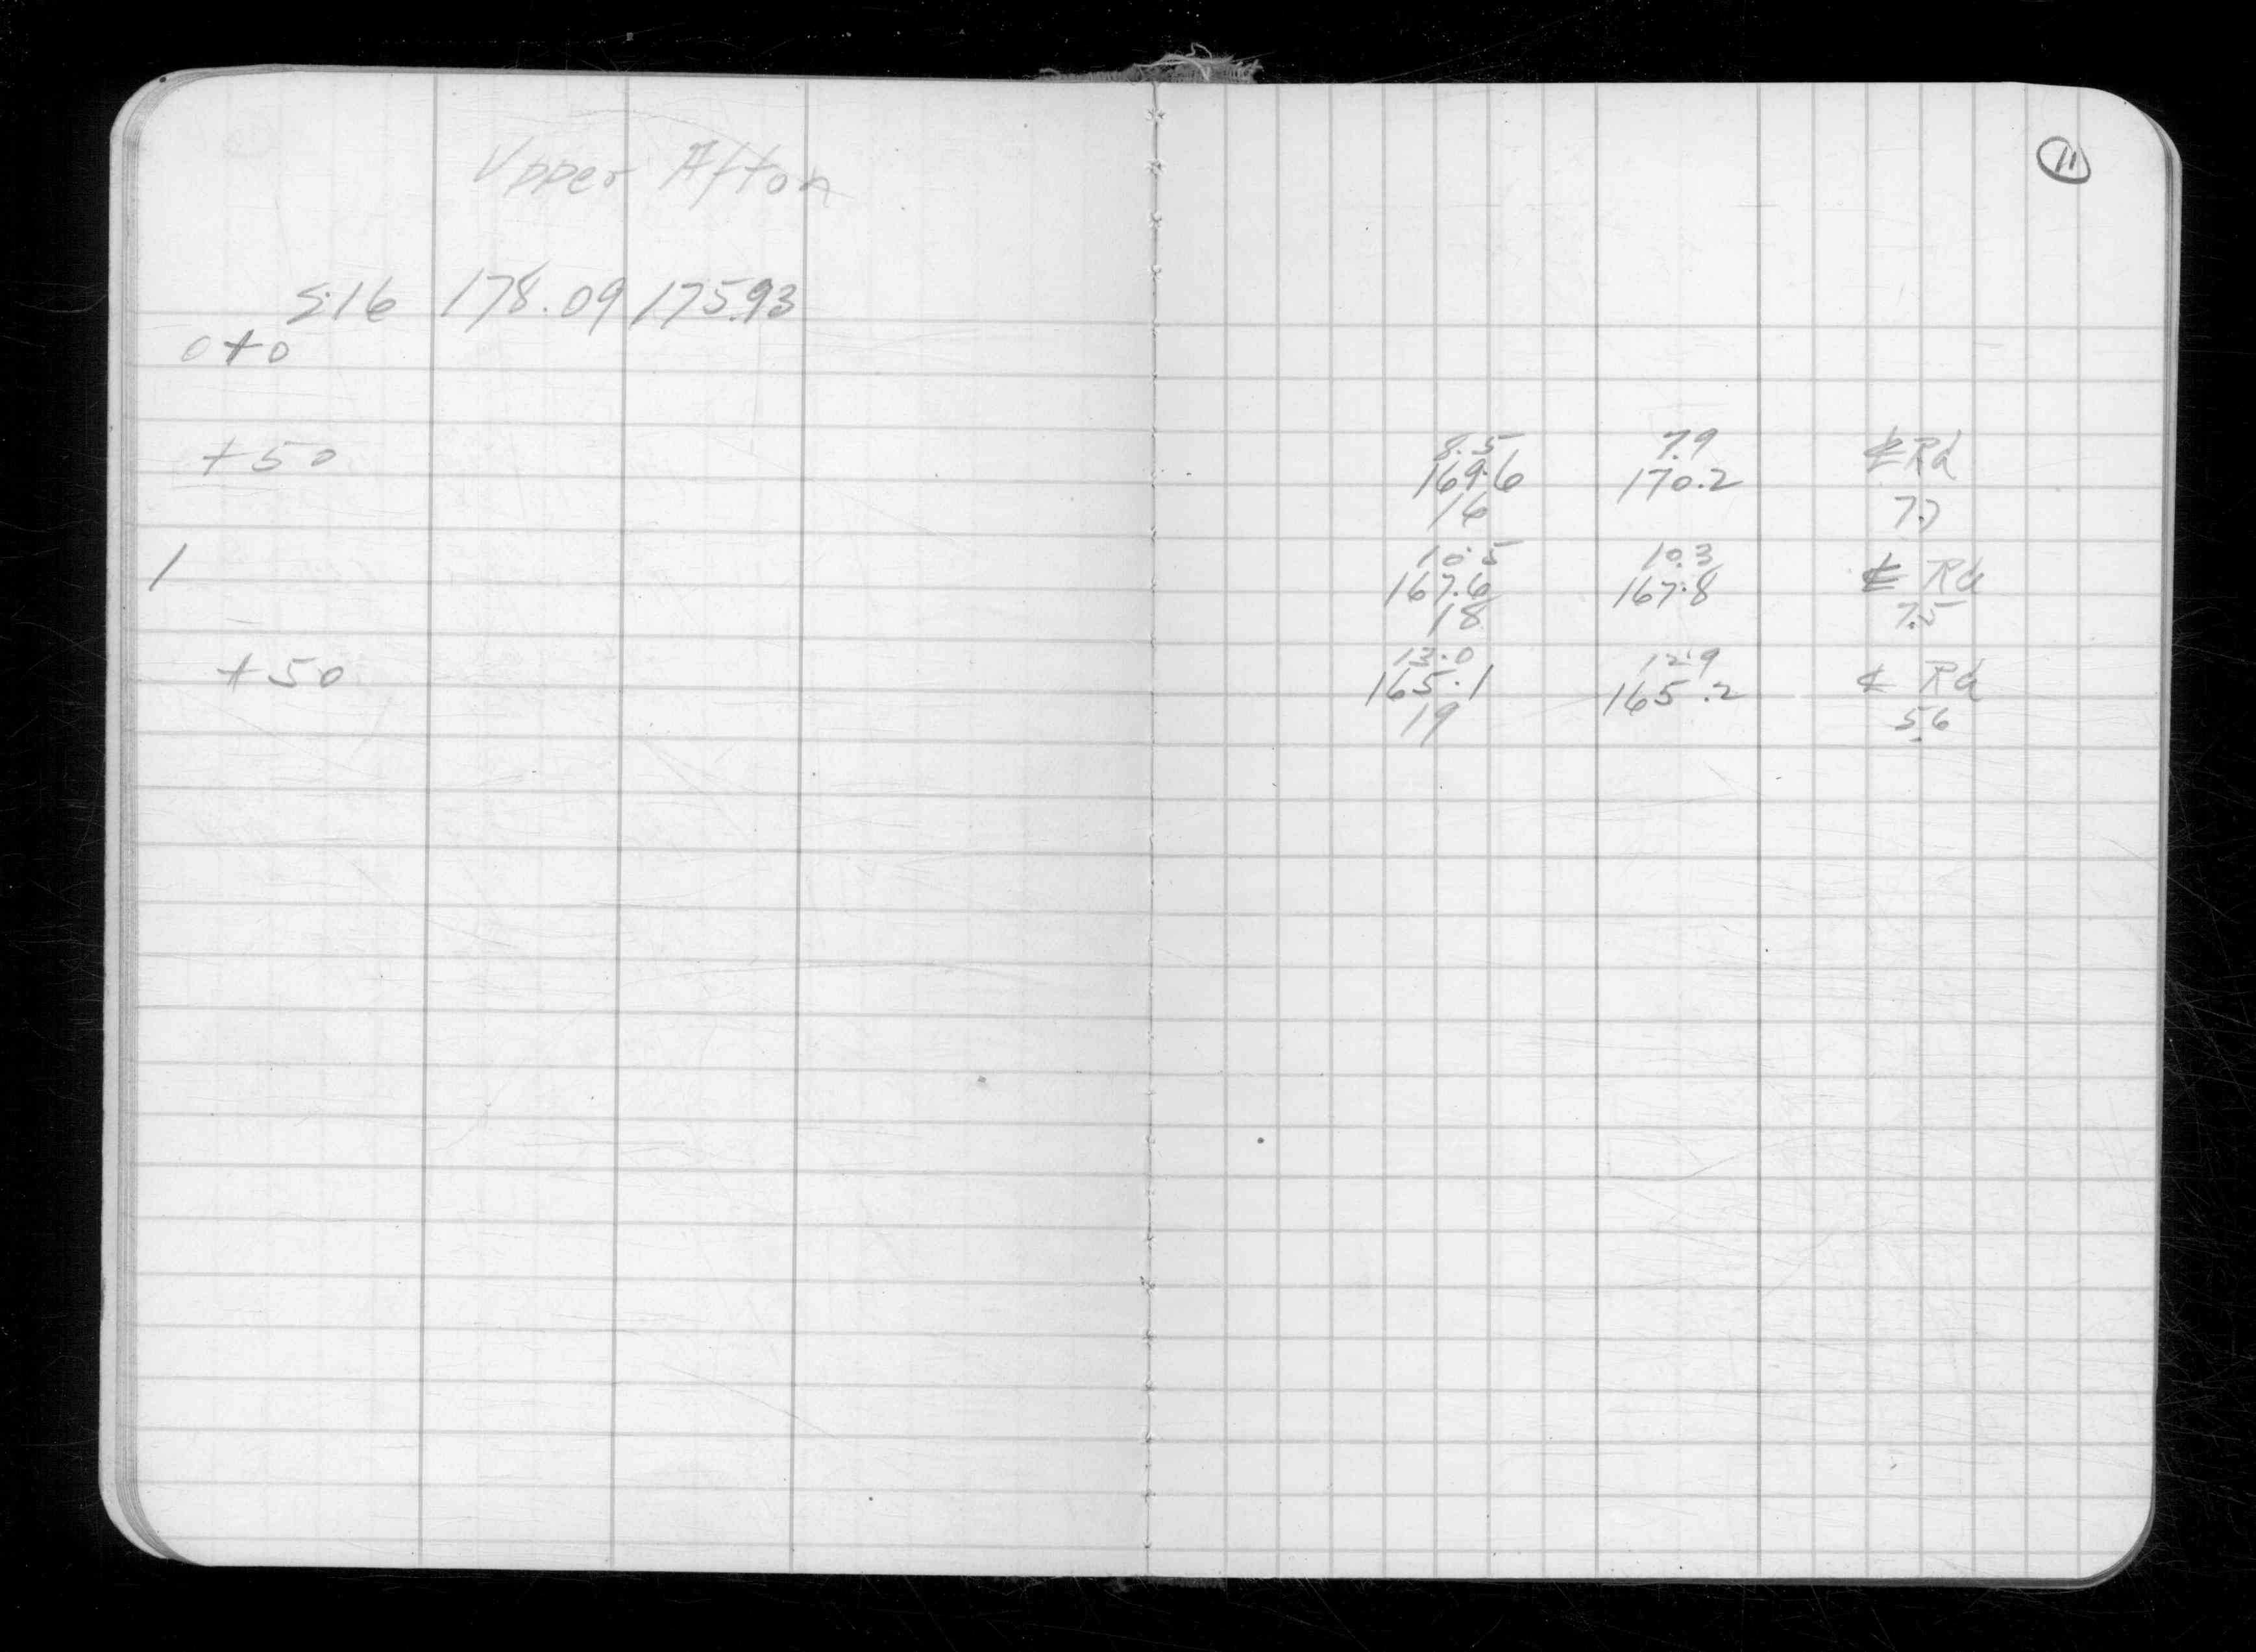 Upper Afton
11
5.16 178.09 175.93
0+0
+50 8.5 7.9 ℄ Rd
169.6 170.2
16 7.7
1 10.5 10.3 ℄ Rd
167.6 167.8
18 7.5
+50 13.0 12.9 ℄ Rd
165.1 165.2
19 5.6